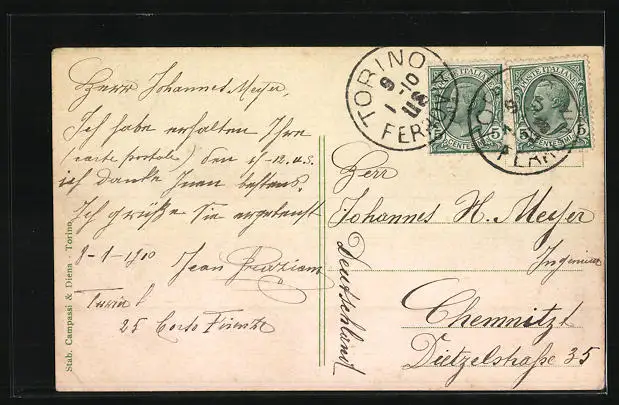 Herr Johannes Meyer,
Ich habe erhalten Ihre
(carte postale) den 17-12. u.s.
ich danke Ihnen bestens.
Ich grüße Sie ergebenst
8-1-1910 Jean
25 Corso Firenze
Stab. Campassi & Diena - Torino
TORINO
FERROVIA
POSTE ITALIANE
5 CENTESIMI 5
POSTE ITALIANE
5 CENTESIMI 5
Herr
Johannes H. Meyer
Ingenieur
Chemnitz
Dietzelstraße 35
Deutschland